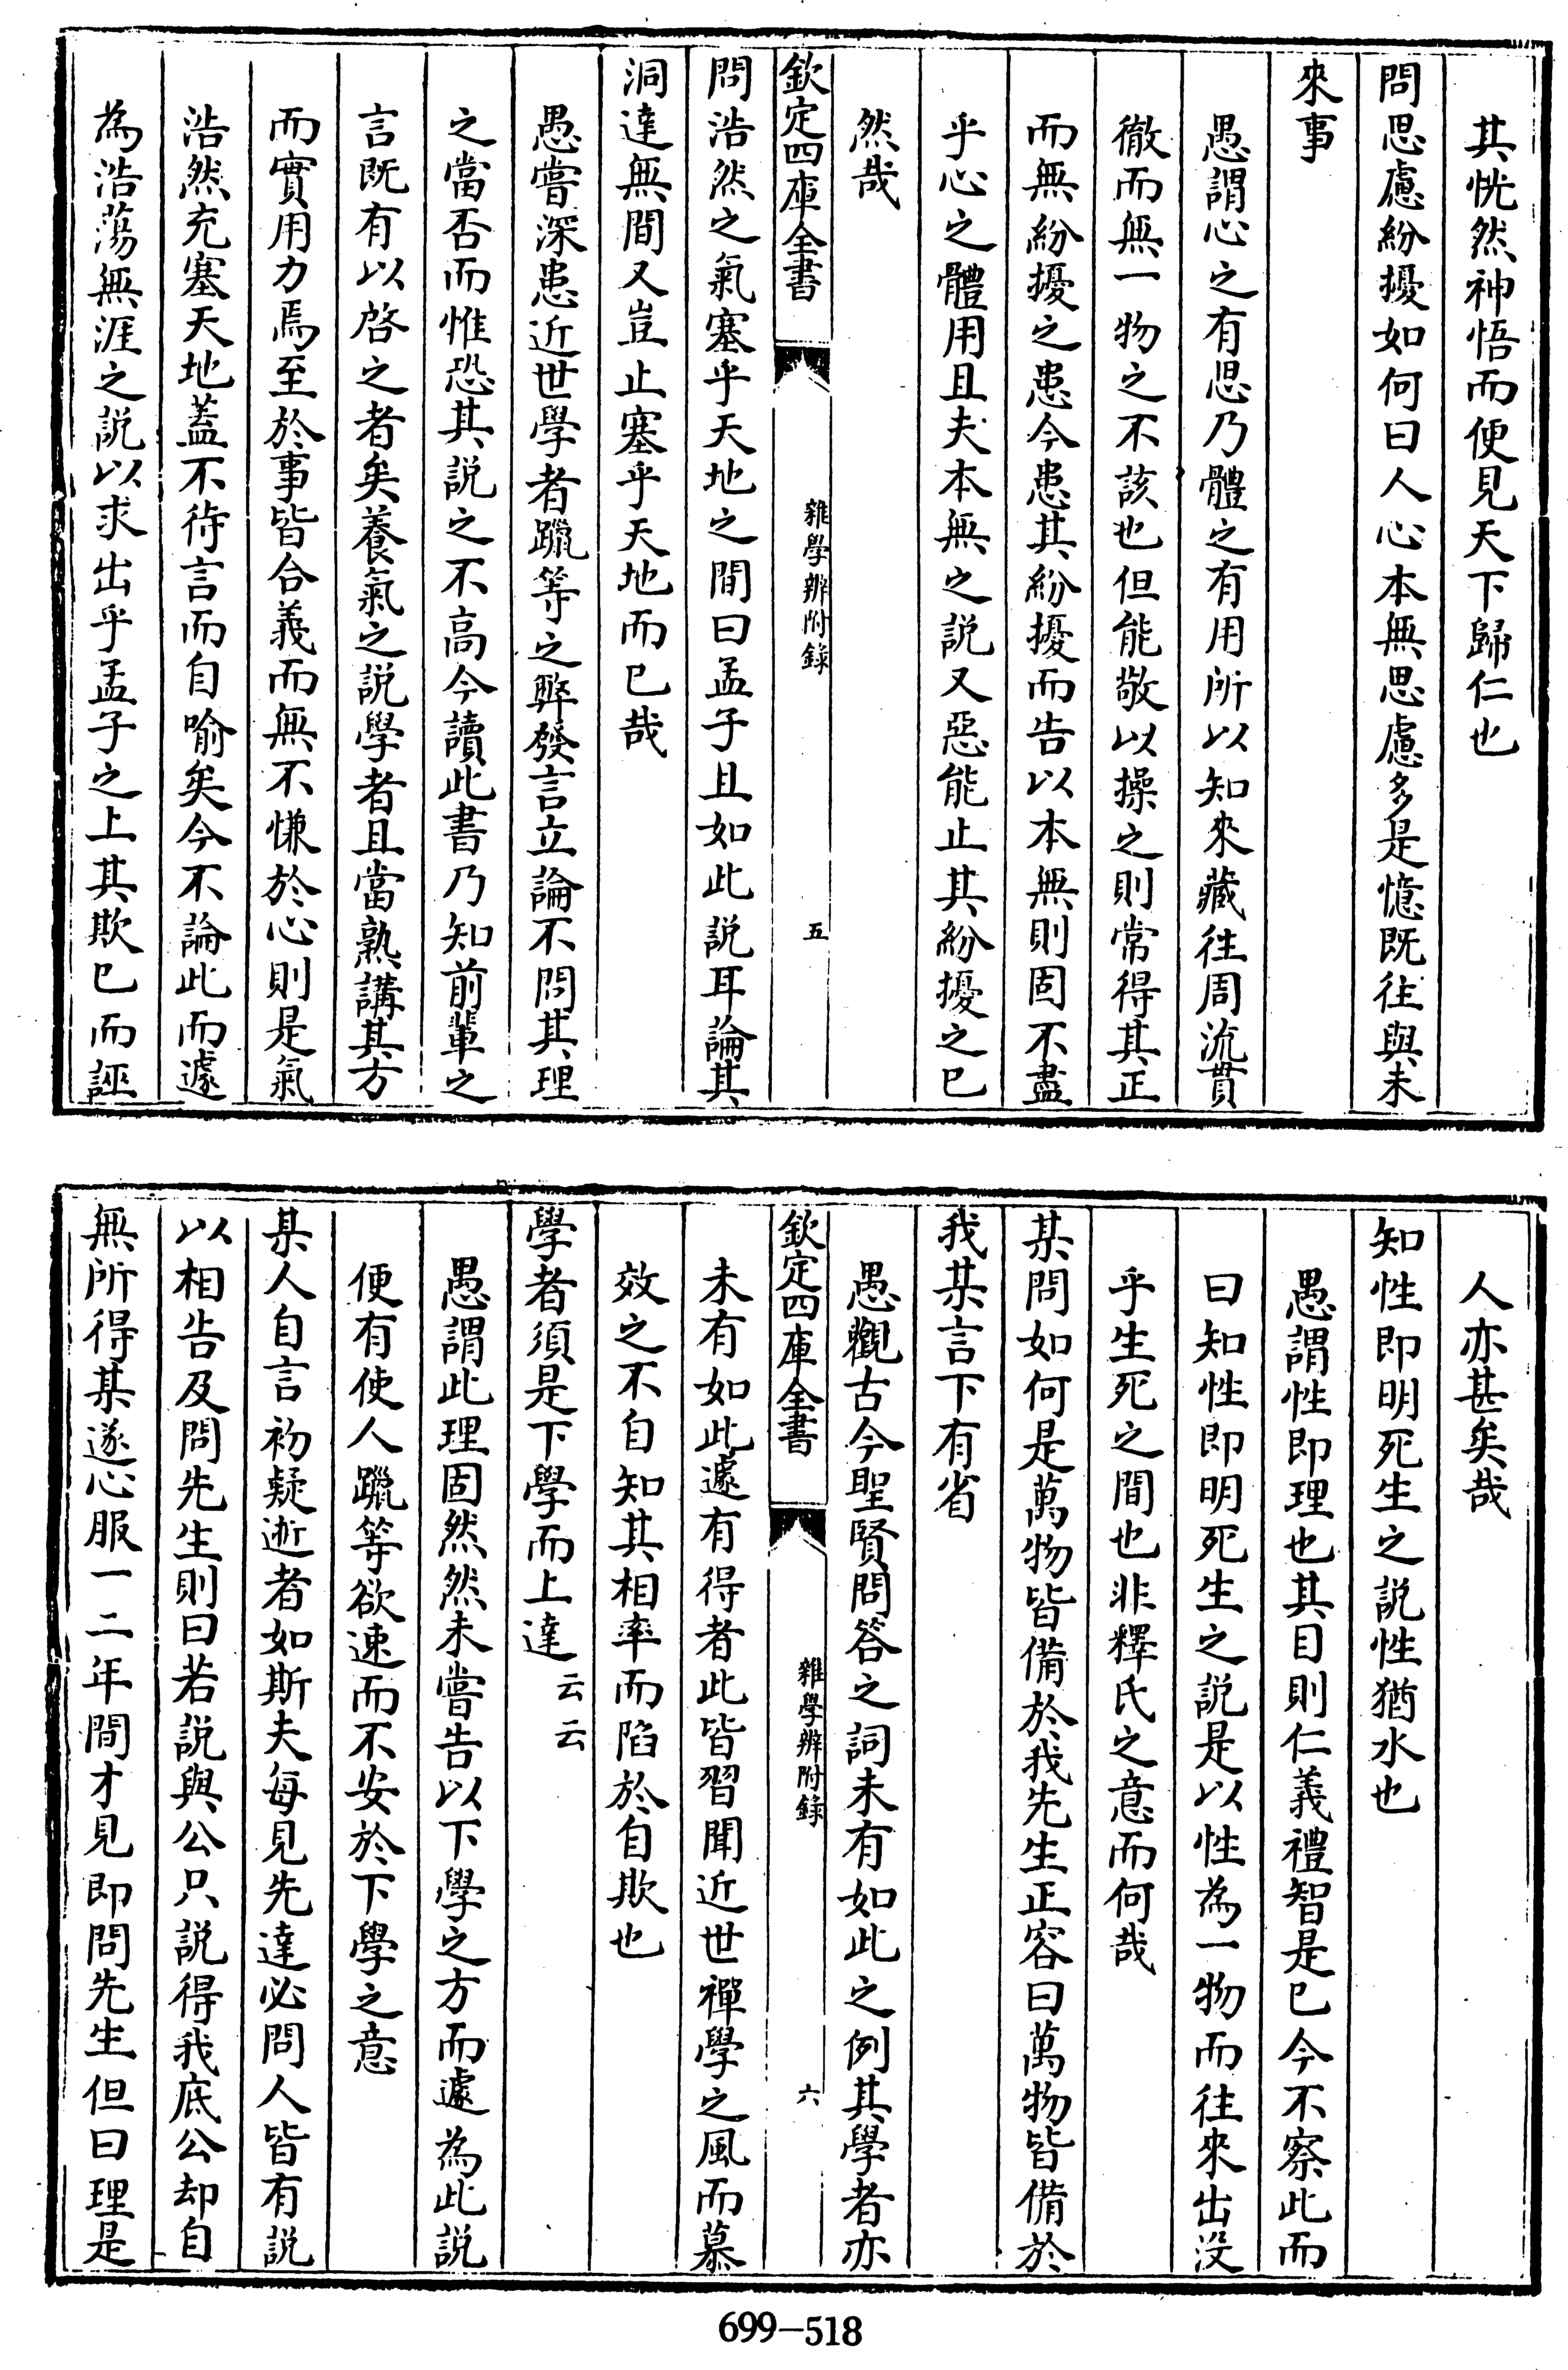 其恍然神悟而便見天下歸仁也
問思慮紛擾如何曰人心本無思慮多是憶既往與未
來事
愚謂心之有思乃體之有用所以知來藏往周流貫
徹而無一物之不該也但能敬以操之則常得其正
而無紛擾之患今患其紛擾而告以本無則固不盡
乎心之體用且夫本無之説又惡能止其紛擾之已
然哉
欽定四庫全書
雜學辨附錄
五
問浩然之氣塞乎天地之間曰孟子且如此説耳論其
洞達無間又豈止塞乎天地而已哉
愚嘗深患近世學者躐等之弊發言立論不問其理
之當否而惟恐其説之不高今讀此書乃知前輩之
言既有以啓之者矣養氣之説學者且當熟講其方
而實用力焉至於事皆合義而無不慊於心則是氣
浩然充塞天地蓋不待言而自喻矣今不論此而遽
為浩蕩無涯之説以求出乎孟子之上其欺已而誣
人亦甚矣哉
知性即明死生之説性猶水也
愚謂性即理也其目則仁義禮智是已今不察此而
曰知性即明死生之説是以性為一物而往來出沒
乎生死之間也非釋氏之意而何哉
某問如何是萬物皆備於我先生正容曰萬物皆備於
我某言下有省
愚觀古今聖賢問答之詞未有如此之例其學者亦
欽定四庫全書
雜學辨附錄
六
未有如此遽有得者此皆習聞近世禪學之風而慕
效之不自知其相率而陷於自欺也
學者須是下學而上達云云
愚謂此理固然然未嘗告以下學之方而遽為此説
便有使人躐等欲速而不安於下學之意
某人自言初疑逝者如斯夫每見先達必問人皆有説
以相告及問先生則曰若説與公只説得我底公却自
無所得某遂心服一二年間才見即問先生但曰理是
699-518